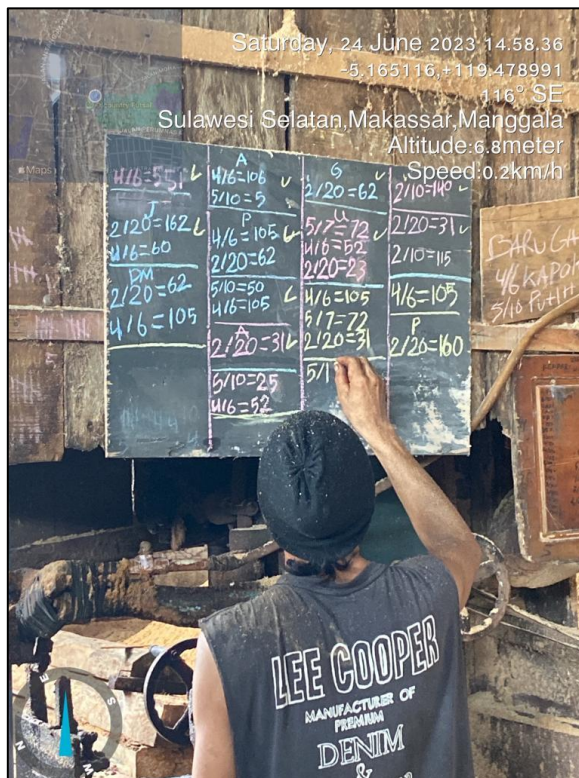 Saturday, 24 June 2023 14.58.36
-5.165116,+119.478991
116° SE
Sulawesi Selatan,Makassar,Manggala
Altitude:6.8meter
Speed:0.2km/h
Maps
4/6=55
J
2/20=162
4/6=60
DM
2/20=62
4/6=105
A
4/6=106
5/10=5
P
4/6=105
2/20=62
5/10=50
4/6=105
A
2/20=31
5/10=25
4/6=52
G
2/20=62
U
5/7=72
4/6=52
2/20=23
4/6=105
5/7=72
2/20=31
5/1
2/10=140
2/20=31
2/10=115
4/6=105
P
2/20=160
4/6 KAPOK
5/10 PUTIH
LEE COOPER
MANUFACTURER OF
PREMIUM
DENIM
&